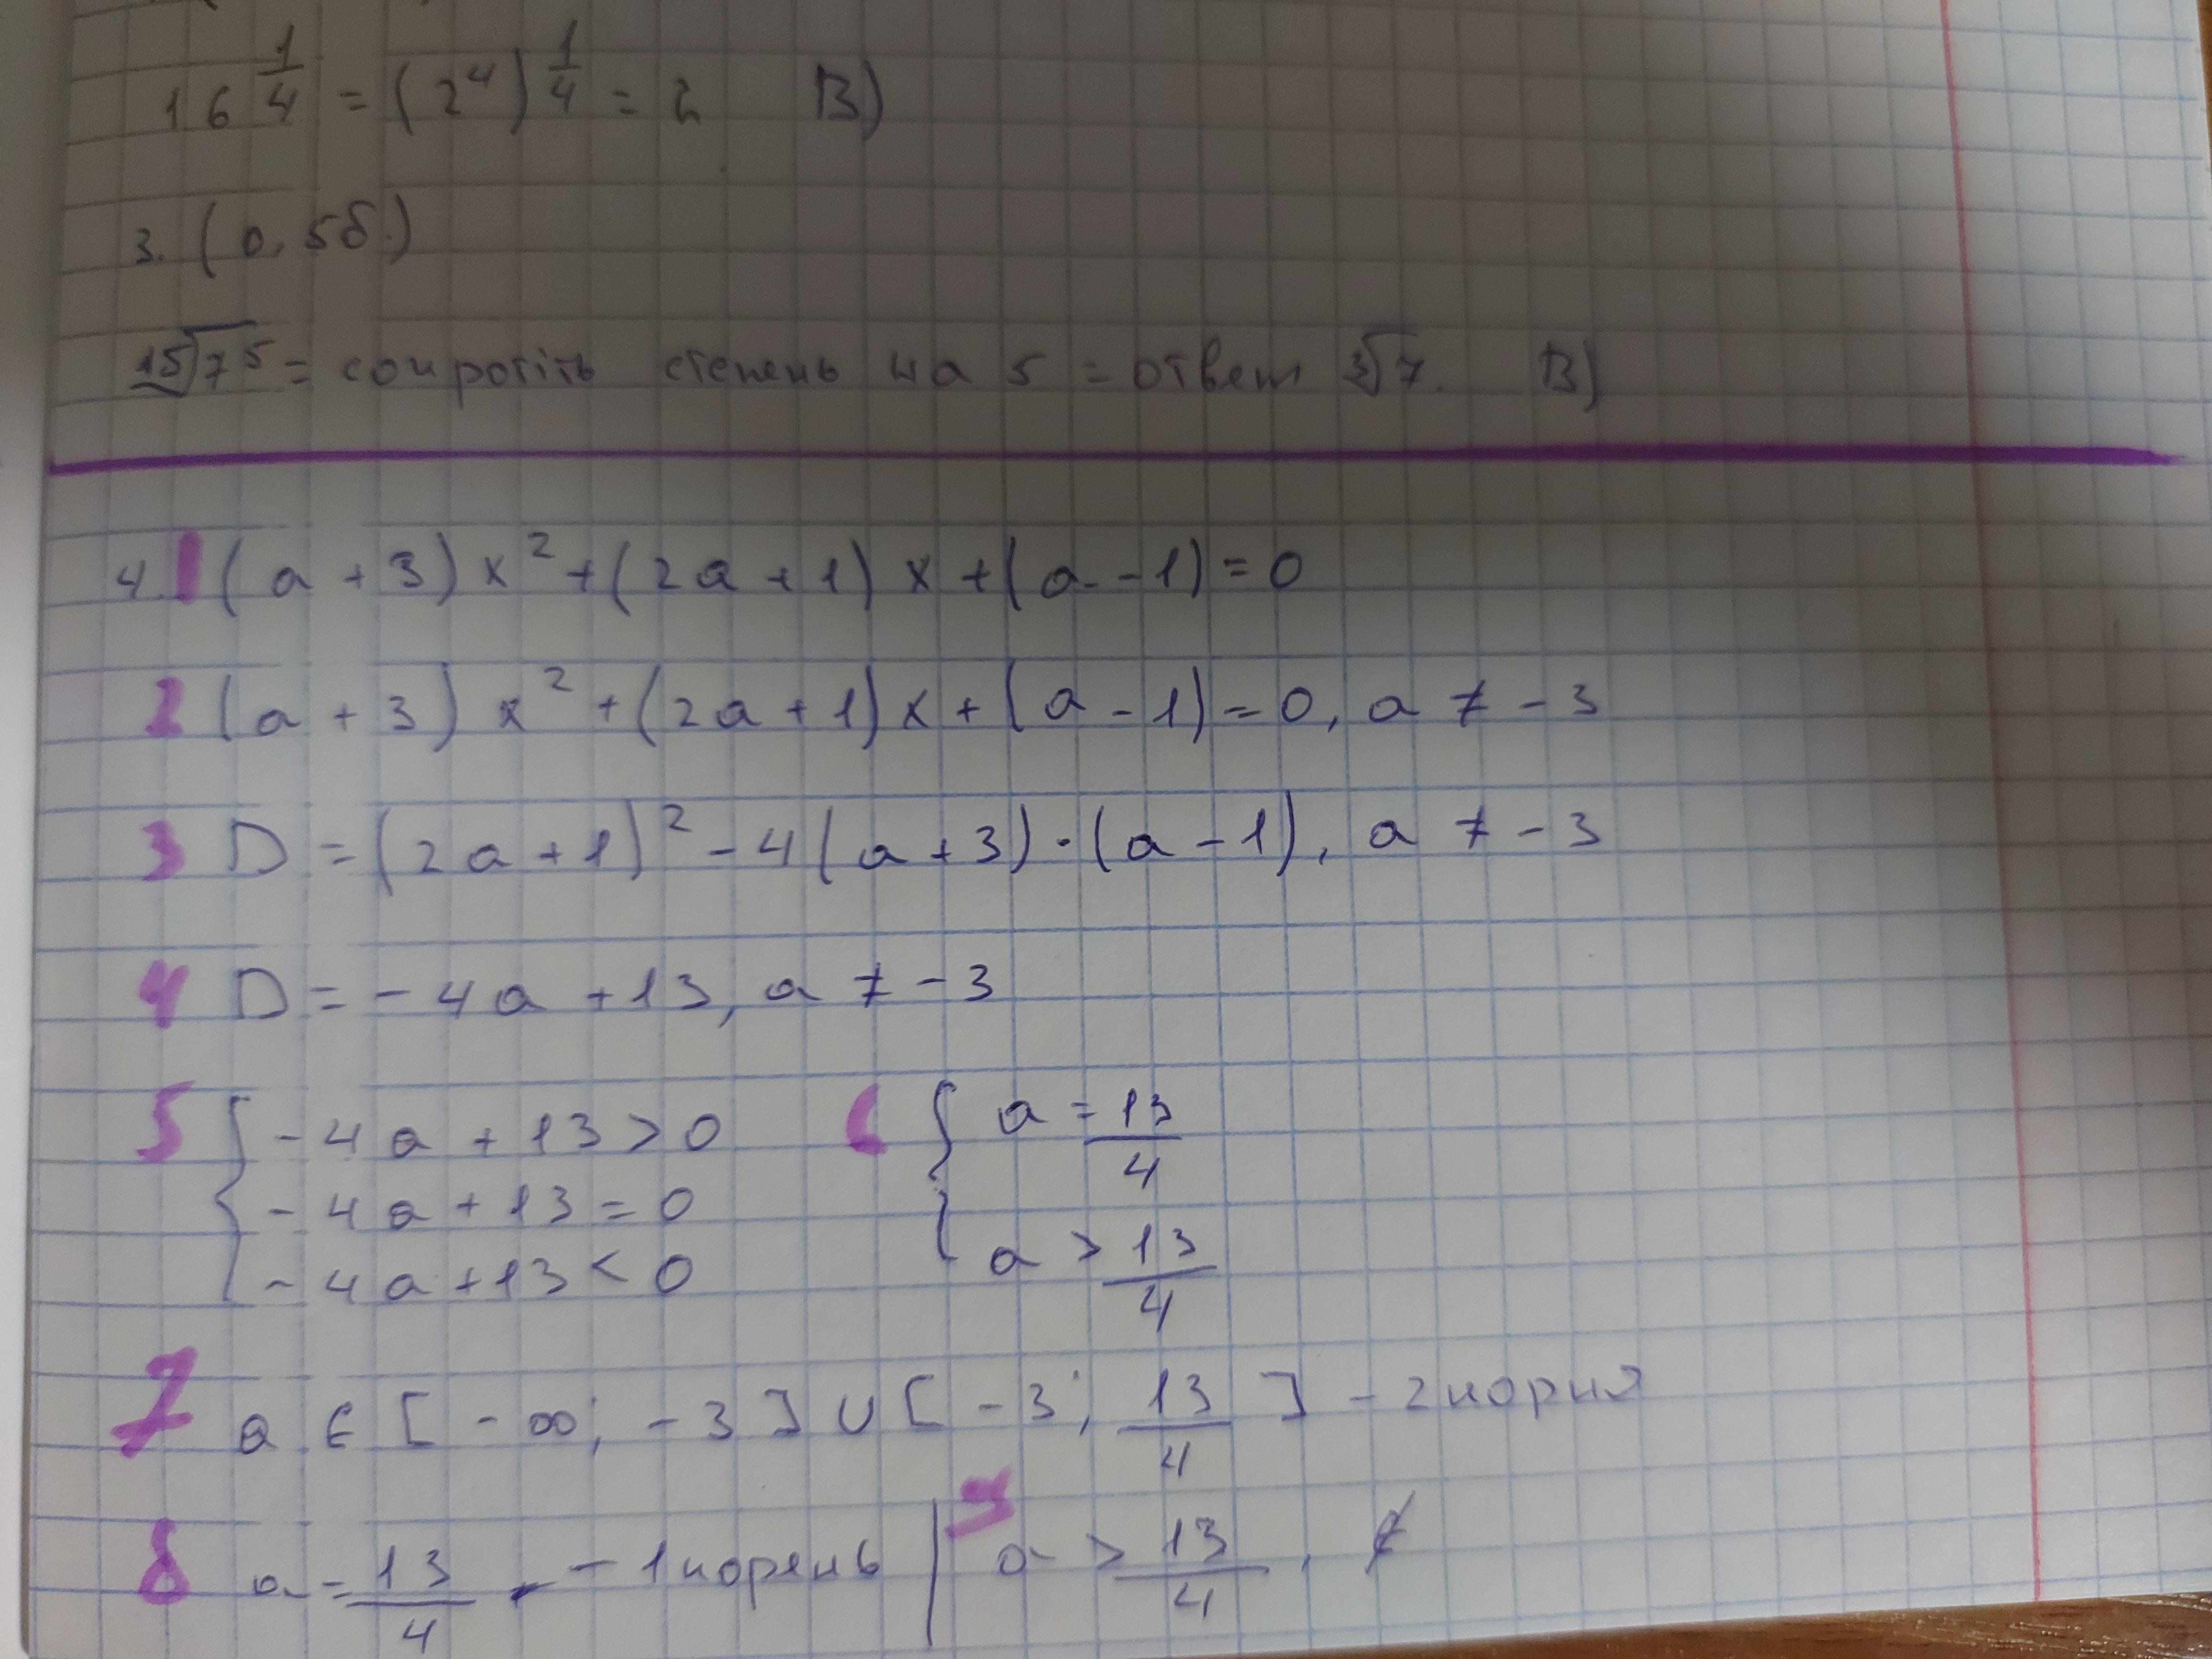 16^(1/4) = (2^4)^(1/4) = 2 В)
3. (0,5б.)
¹⁵√7⁵ = сокротіть степень на 5 = ответ ³√7. В)
4. 1 (a + 3) x² + (2a + 1) x + (a - 1) = 0
2 (a + 3) x² + (2a + 1) x + (a - 1) = 0, a ≠ -3
3 D = (2a + 1)² - 4(a + 3) · (a - 1), a ≠ -3
4 D = -4a + 13, a ≠ -3
5 { -4a + 13 > 0
-4a + 13 = 0
-4a + 13 < 0
6 { a = 13/4
a > 13/4
7 a ∈ [-∞; -3] ∪ [-3; 13/4] - 2 корня
8 a = 13/4 - 1 корень | a > 13/4,